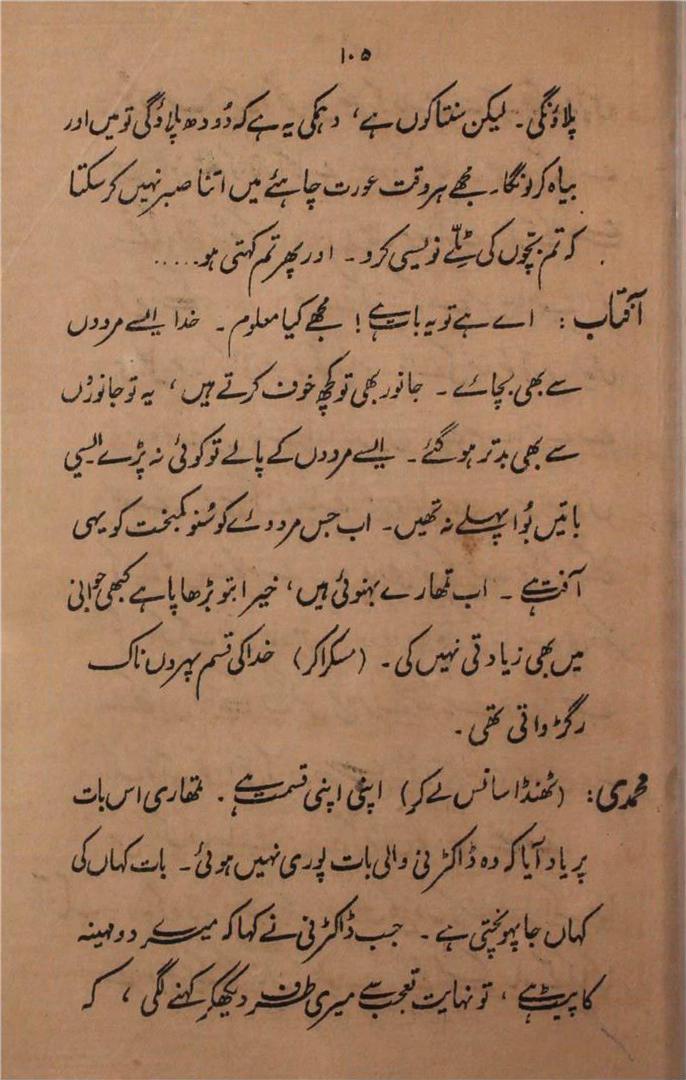 ۱۰۵
پلاؤنگی۔ لیکن سنتا کون ہے، دہمکی یہ ہے کہ دُودھ پلاؤگی تو میں اور
بیاہ کر لونگا۔ مجھے ہر وقت عورت چاہئے میں اتنا صبر نہیں کر سکتا
کہ تم بچّوں کی ٹِلّے نویسی کرو۔ اور پھر تم کہتی ہو.....
آفتاب: اے ہے تو یہ بات ہے! مجھے کیا معلوم۔ خدا ایسے مردوں
سے بھی بچائے۔ جانور بھی تو کچھ خوف کرتے ہیں، یہ تو جانورُں
سے بھی بدتر ہو گئے۔ ایسے مردوں کے پالے تو کوئی نہ پڑے ایسی
باتیں بُوا پہلے نہ تھیں۔ اب جس مردوئے کو سُنو کمبخت کو یہی
آفت ہے۔ اب تمھارے بہنوئی ہیں، خیر ابتو بڑھاپا ہے کبھی جوانی
میں بھی زیادتی نہیں کی۔ (مسکراکر) خدا کی قسم پہروں ناک
رگڑواتی تھی۔
محمدی: (ٹھنڈا سانس لے کر) اپنی اپنی قسمت ہے۔ تمھاری اس بات
پر یاد آیا کہ وہ ڈاکٹرنی والی بات پوری نہیں ہوئی۔ بات کہاں کی
کہاں جا پہونچتی ہے۔ جب ڈاکٹرنی نے کہا کہ میرے دو مہینہ
کا پیٹ ہے، تو نہایت تعجب سے میری طرف دیکھکر کہنے لگی، کہ